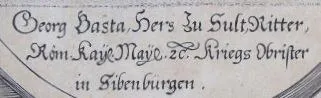 Georg Basta, Hers Zu Sult, Ritter,
Röm: Kaÿe: Maÿe: ꝛc. Kriegs Obrister
in Sibenbürgen.